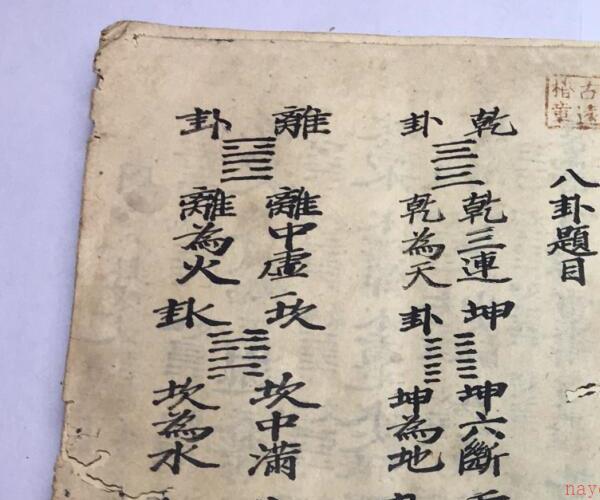 八卦題目
乾卦
乾三連
乾為天
坤卦
坤六斷
坤為地
離卦
離中虛
離為火
坎卦
坎中滿
坎為水